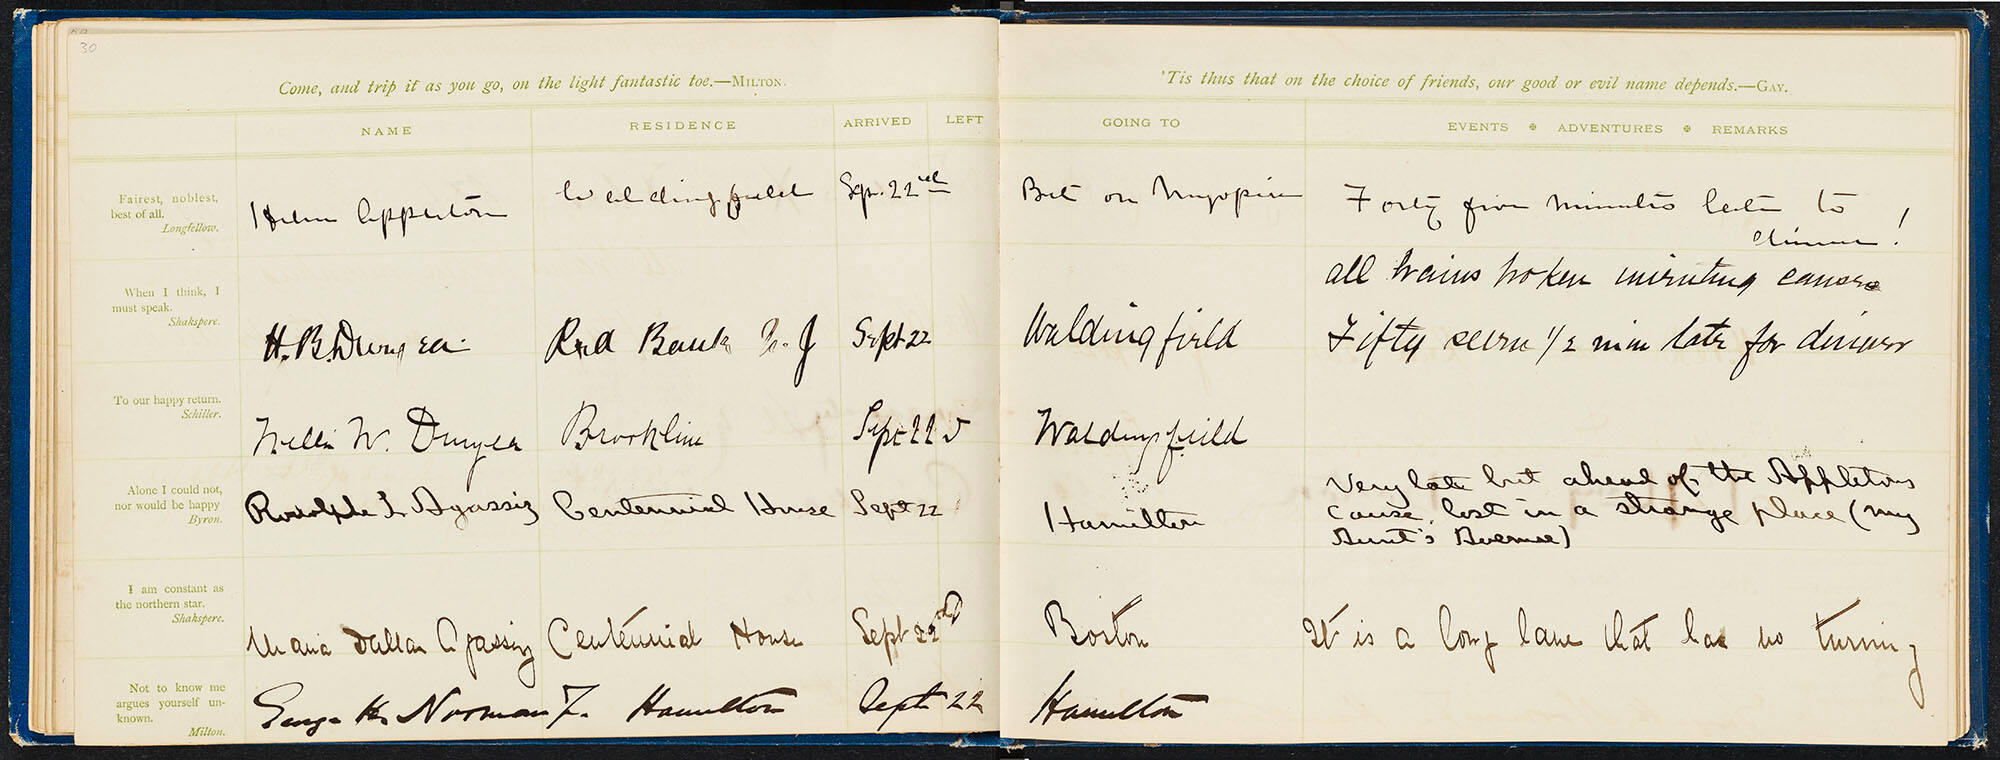 30
Come, and trip it as you go, on the light fantastic toe.—MILTON.
'Tis thus that on the choice of friends, our good or evil name depends.—GAY.
NAME RESIDENCE ARRIVED LEFT GOING TO EVENTS ✠ ADVENTURES ✠ REMARKS
Fairest, noblest,
best of all.
Longfellow.
Helen Appleton Waldingfield Sep. 22nd But on Myopia Forty five minutes late to
dinner!
When I think, I
must speak.
Shakspere.
H. B. Duryea Red Bank N. J Sept 22 Waldingfield
all trains broken minuting
Fifty seven 1/2 min late for dinner
To our happy return.
Schiller.
Nellie W. Duryea Brookline Sept 22d Waldingfield
Alone I could not,
nor would be happy
Byron.
Rodolphe L Agassiz Centennial House Sept 22 Hamilton
Very late but ahead of the Appletons
cause, lost in a strange place (my
Aunt's Avenue)
I am constant as
the northern star.
Shakspere.
Maria Dallas Agassiz Centennial House Sept 22nd Boston It is a long lane that has no turning
Not to know me
argues yourself un-
known.
Milton.
George H. Norman Hamilton Sept 22 Hamilton